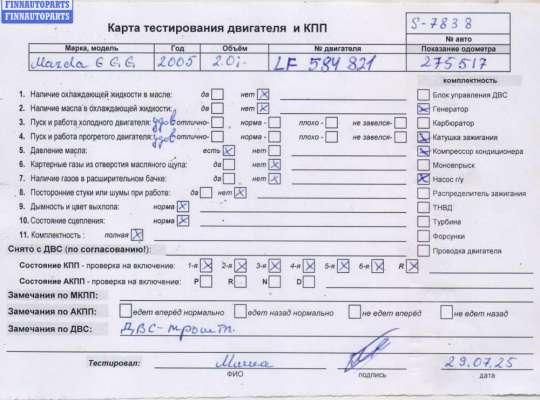 FINNAUTOPARTS
FINNAUTOPARTS
Карта тестирования двигателя и КПП
S-7838
№ авто
Марка, модель Год Объём № двигателя Показание одометра
Mazda 6 G.G. 2005 2.0i LF 584 821 275517
комплектность
1. Наличие охлаждающей жидкости в масле: да нет Блок управления ДВС
2. Наличие масла в охлаждающей жидкости: да нет Генератор
3. Пуск и работа холодного двигателя: удов отлично- норма - плохо - не завелся- Карбюратор
4. Пуск и работа прогретого двигателя: удов отлично- норма - плохо - не завелся- Катушка зажигания
5. Давление масла: есть нет Компрессор кондиционера
6. Картерные газы из отверстия масляного щупа: да нет Моновпрыск
7. Наличие газов в расширительном бачке: да нет Насос г/у
8. Посторонние стуки или шумы при работе: да нет Распределитель зажигания
9. Дымность и цвет выхлопа: норма ТНВД
10. Состояние сцепления: норма Турбина
11. Комплектность : полная Форсунки
Снято с ДВС (по согласованию!): Проводка двигателя
Состояние КПП - проверка на включение: 1-я 2-я 3-я 4-я 5-я 6-я R
Состояние АКПП - проверка на включение: P R N D
Замечания по МКПП:
Замечания по АКПП: едет вперёд нормально едет назад нормально не едет вперёд не едет назад
Замечания по ДВС: ДВС-троит.
Тестировал: Миша 29.07.25
ФИО подпись дата